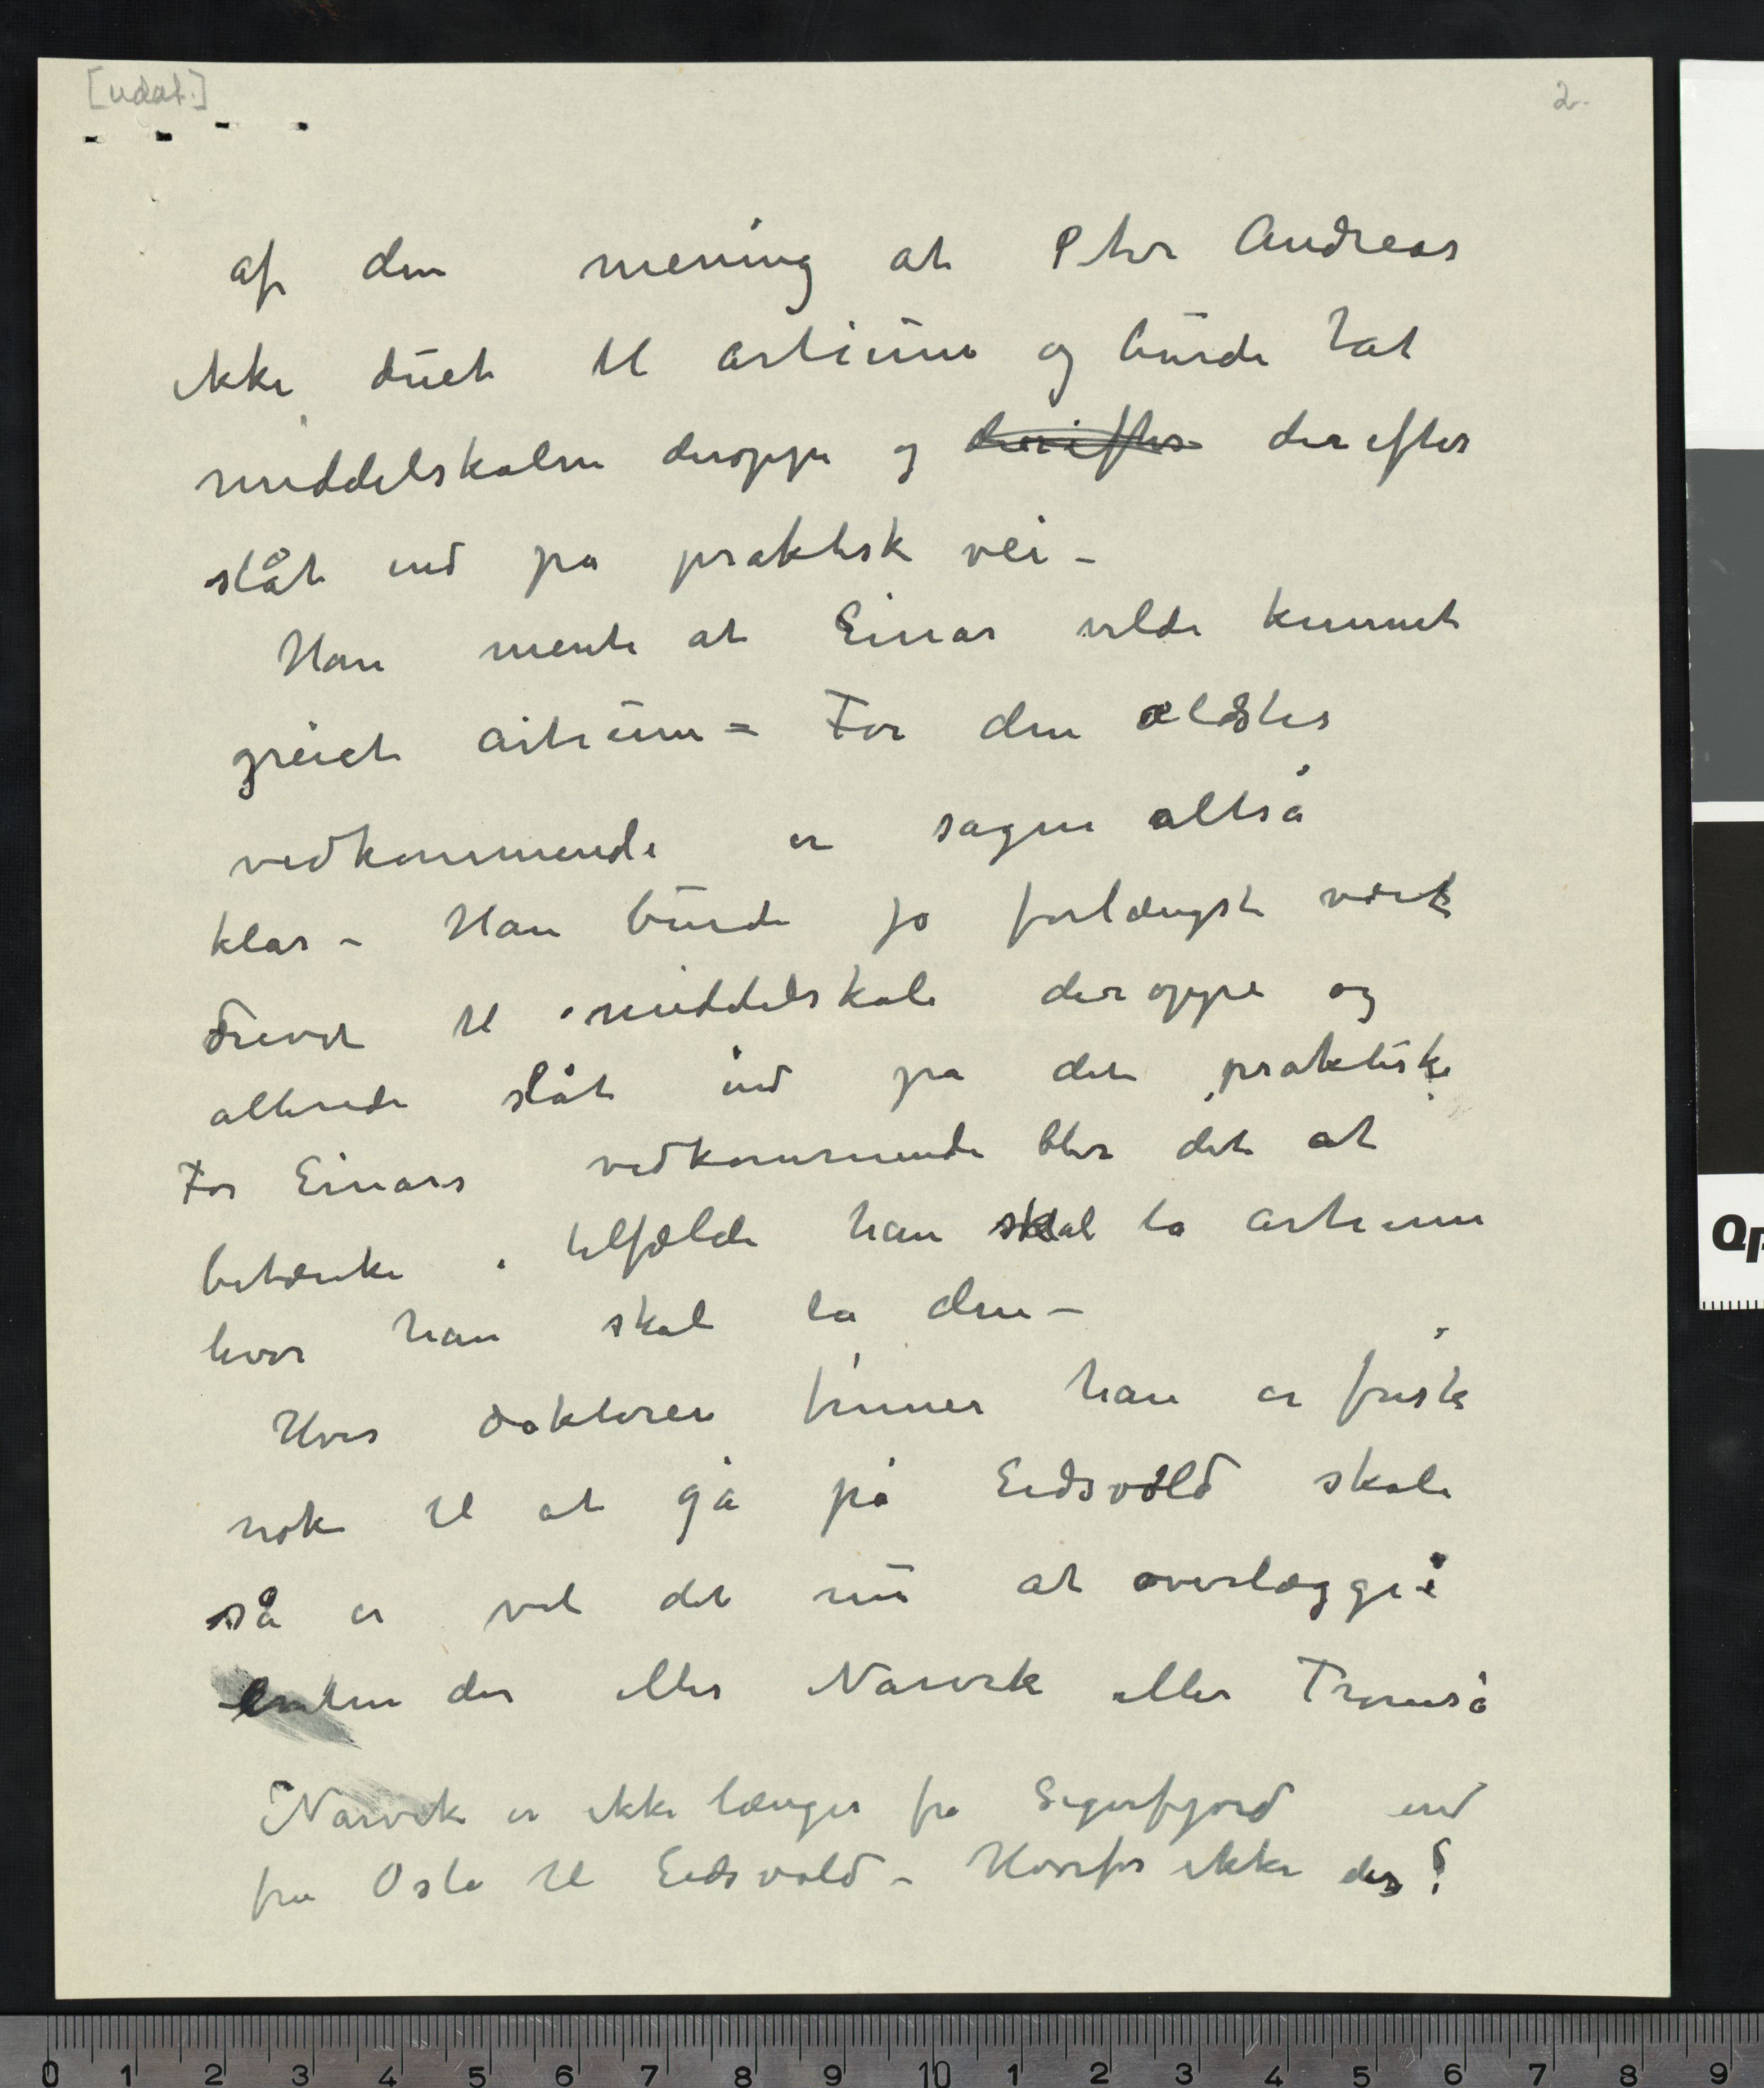 [udat.]
2.
af den mening at Peter Andreas
ikke duet til artium og burde tat
middelskolen deroppe og derefter derefter
slåt ind på praktisk vei -
Han mente at Einar vilde kunnet
greiet artium = For den eldstes
vedkommende er sagen altså
klar - Han burde jo forlængst vært
drevet til middelskole deroppe og
allerede slåt ind på det praktiske
For Einars vedkommende blir det at
betænke i tilfælde han skal ta artium
hvor han skal ta den -
Hvis doktoren finner han er frisk
nok til at gå på Eidsvold skole
så er vel det nu at overlægge:
enten der eller Narvik eller Tromsø
Narvik er ikke længer fra Sigerfjord end
fra Oslo til Eidsvold - Hvorfor ikke der?
QP
0 1 2 3 4 5 6 7 8 9 10 1 2 3 4 5 6 7 8 9